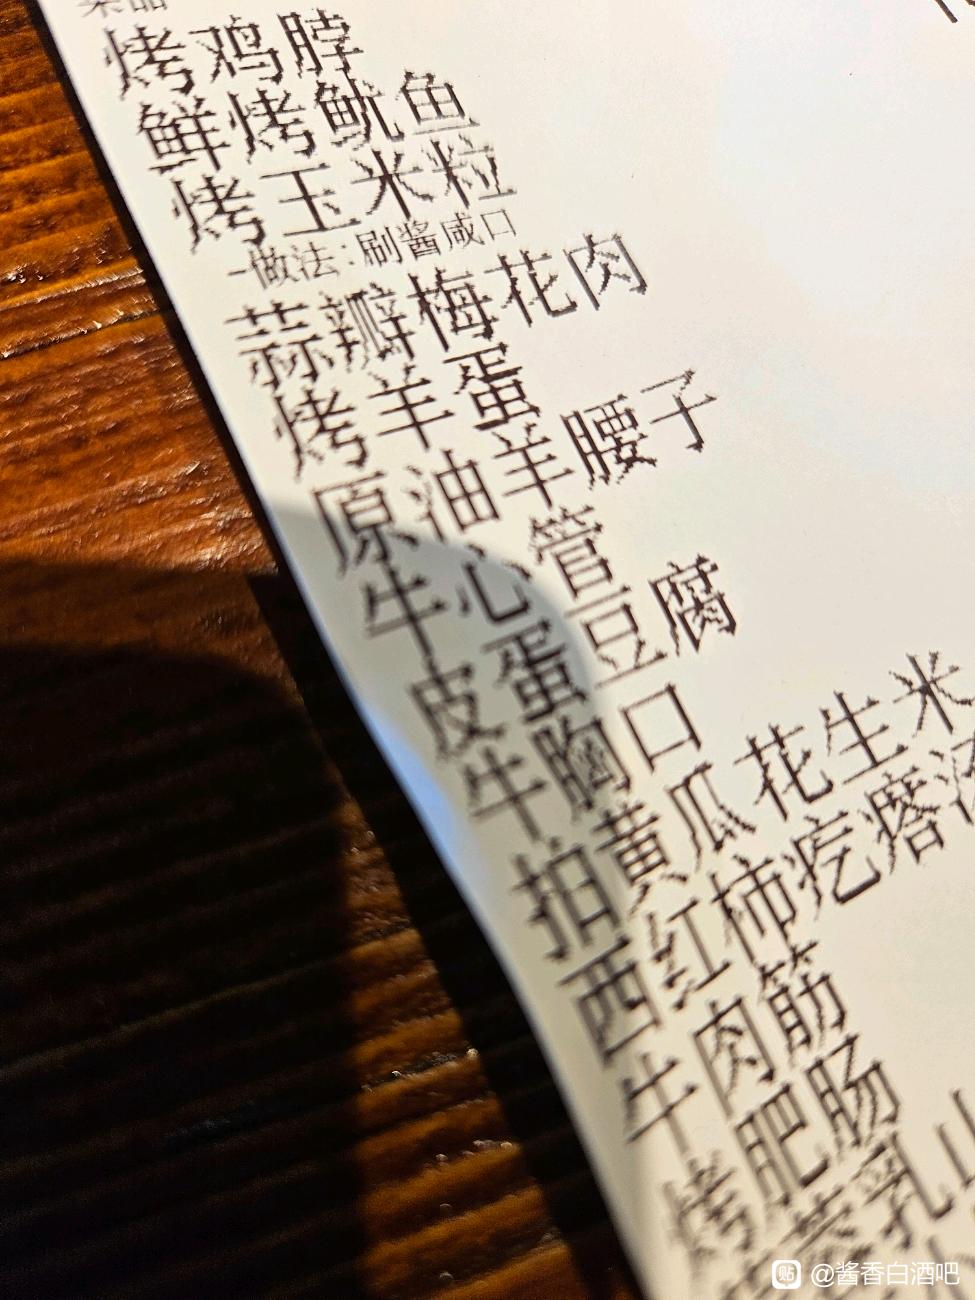 菜品
烤鸡脖
鲜烤鱿鱼
烤玉米粒
-做法:刷酱咸口
蒜瓣梅花肉
烤羊蛋
原油羊腰子
牛心管
皮蛋豆腐
牛胸口
拍黄瓜花生米
西红柿疙瘩汤
牛肉筋
烤肥肠
贴 @酱香白酒吧